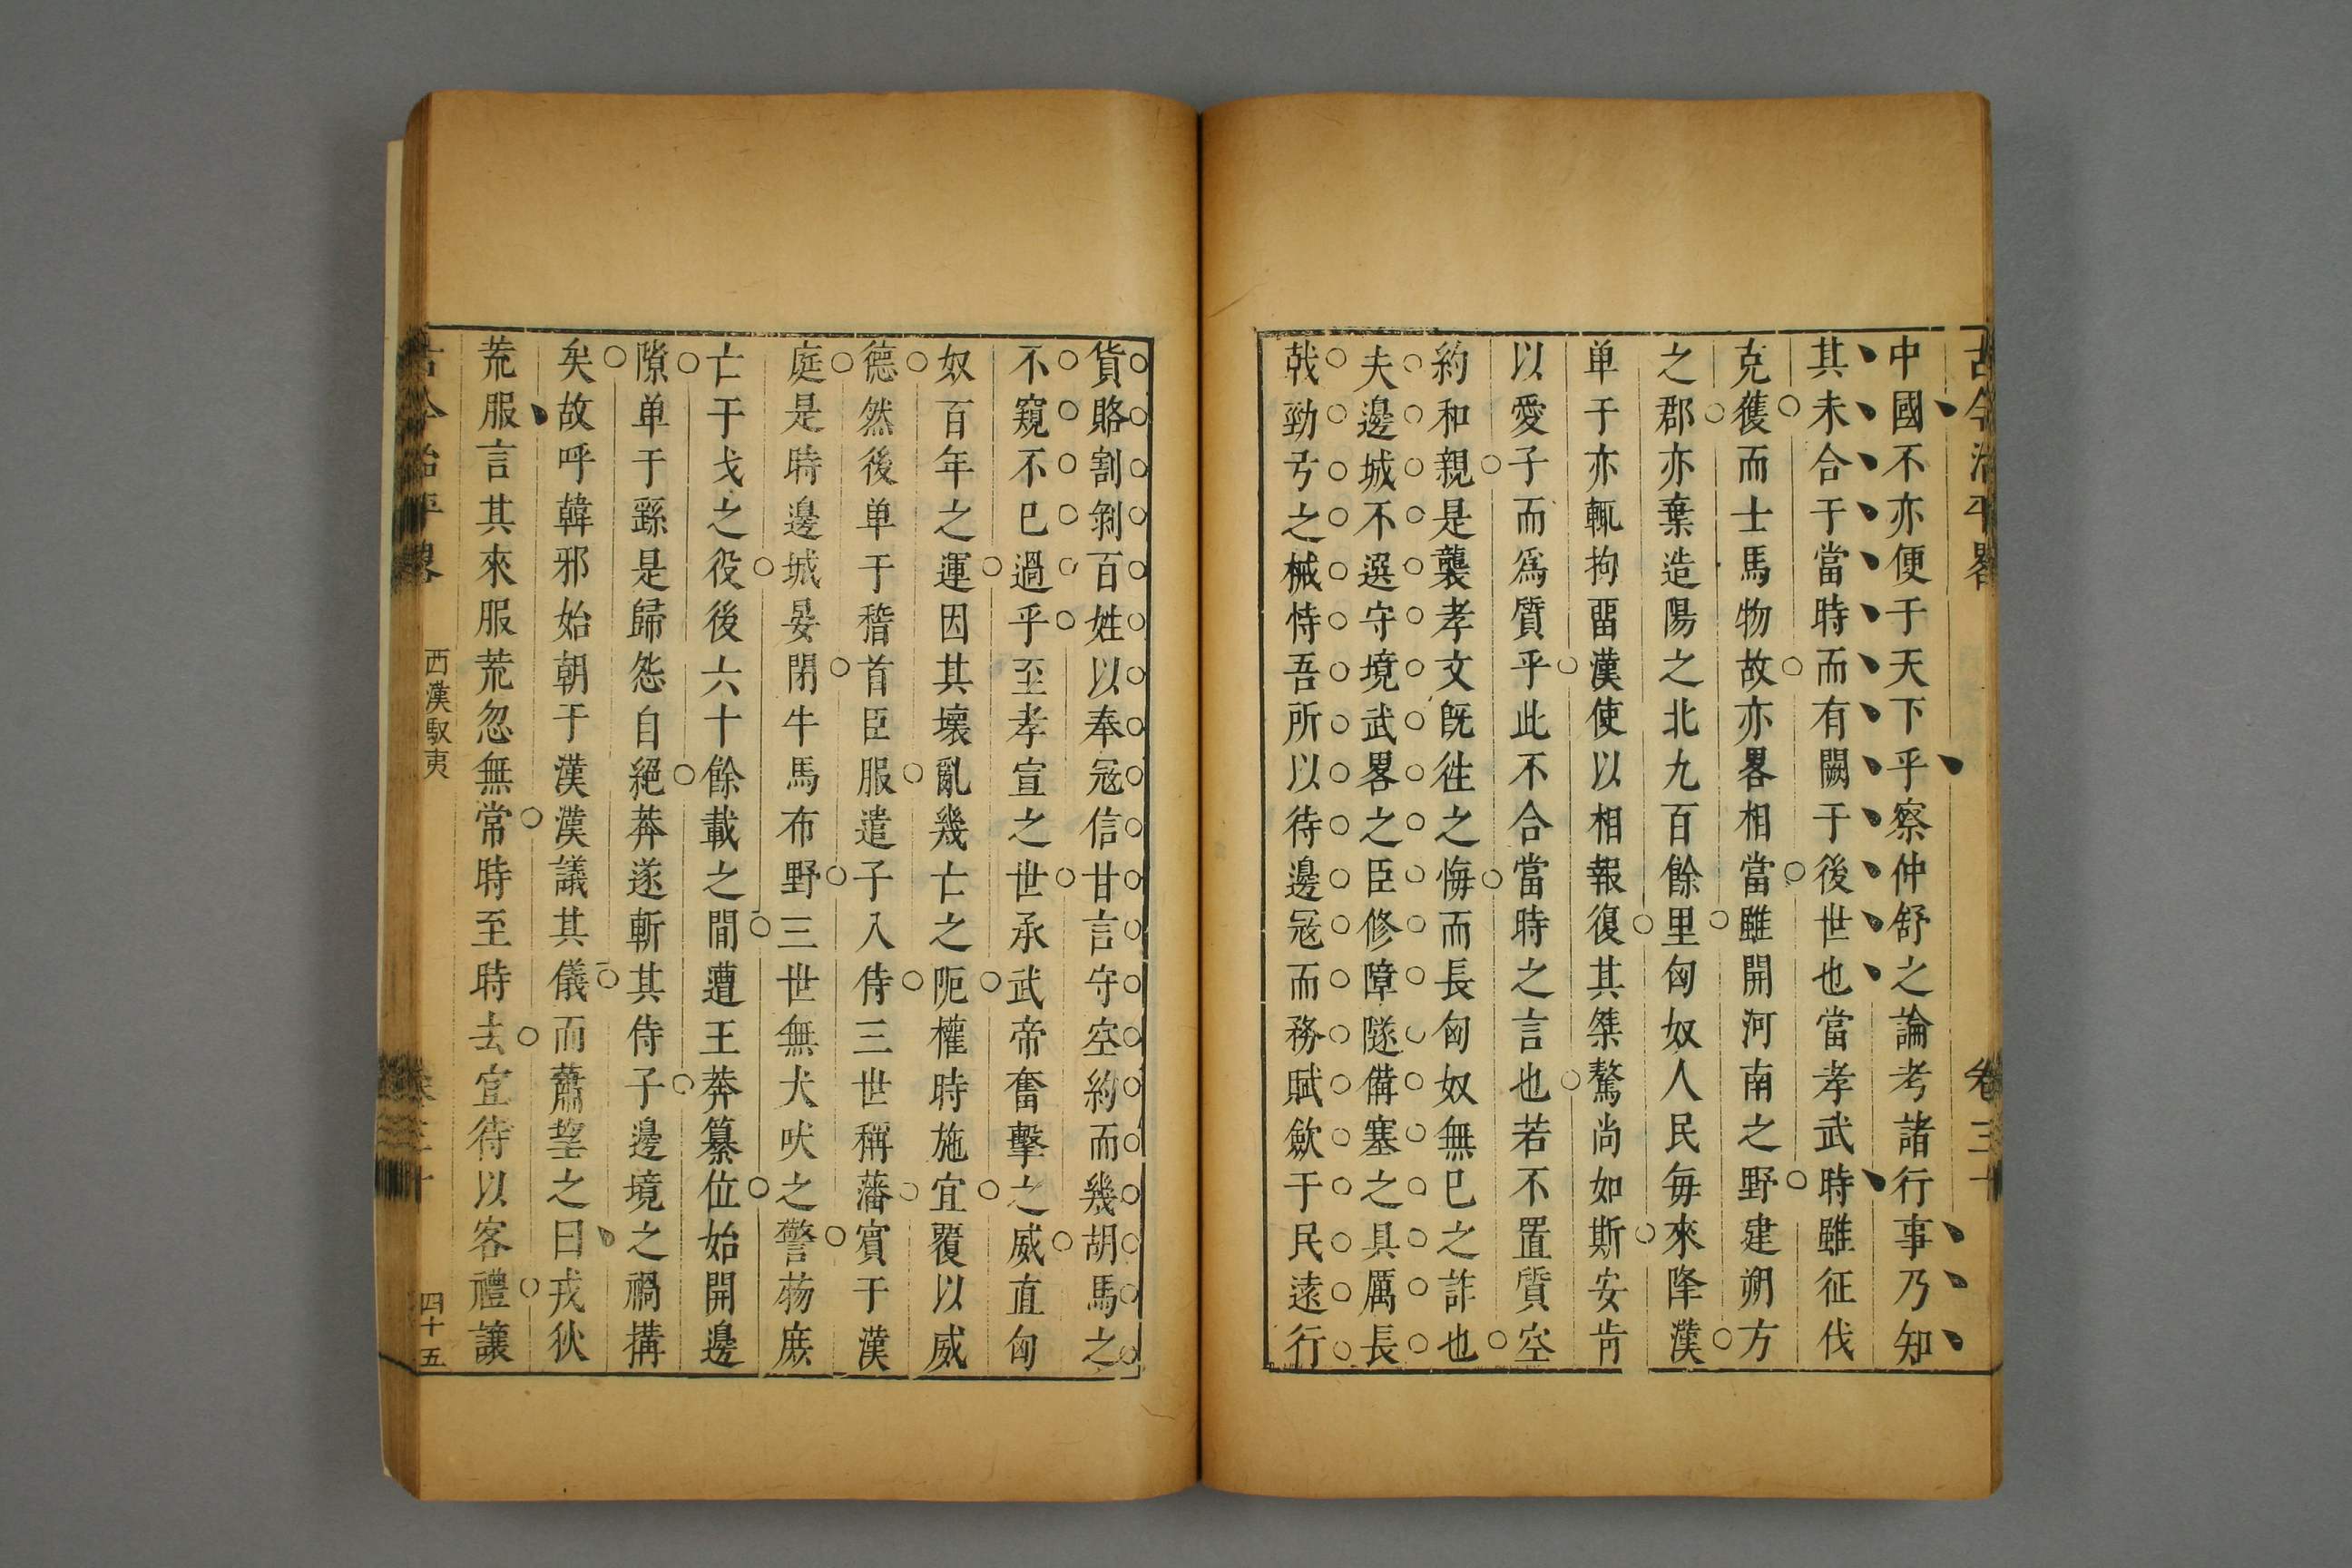 古今治平畧 卷三十
中國不亦便于天下乎察仲舒之論考諸行事乃知
其未合于當時而有闕于後世也當孝武時雖征伐
克𫉬而士馬物故亦畧相當雖開河南之野建朔方
之郡亦棄造陽之北九百餘里匈奴人民每來降漢
单于亦輒拘畱漢使以相報復其桀驁尚如斯安肯
以愛子而爲質乎此不合當時之言也若不置質空
約和親是襲孝文旣徃之悔而長匈奴無已之詐也
夫邊城不選守境武畧之臣修障隧備塞之具厲長
戟勁弓之械恃吾所以待邊冦而務賦歛于民遠行
貨賂割剝百姓以奉冦信甘言守空約而幾胡馬之
不窺不已過乎至孝宣之世承武帝奮擊之威直匈
奴百年之運因其壞亂幾亡之阨權時施宜覆以威
德然後单于稽首臣服遣子入侍三世稱藩賓于漢
庭是時邊城晏閉牛馬布野三世無犬吠之警蒭庶
亡干戈之役後六十餘載之間遭王莽纂位始開邊
隙单于繇是歸怨自絕莽遂斬其侍子邊境之禍搆
矣故呼韓邪始朝于漢漢議其儀而蕭望之曰戎狄
荒服言其來服荒忽無常時至時去宜待以客禮讓
古今治平畧 西漢馭夷 卷三十 四十五